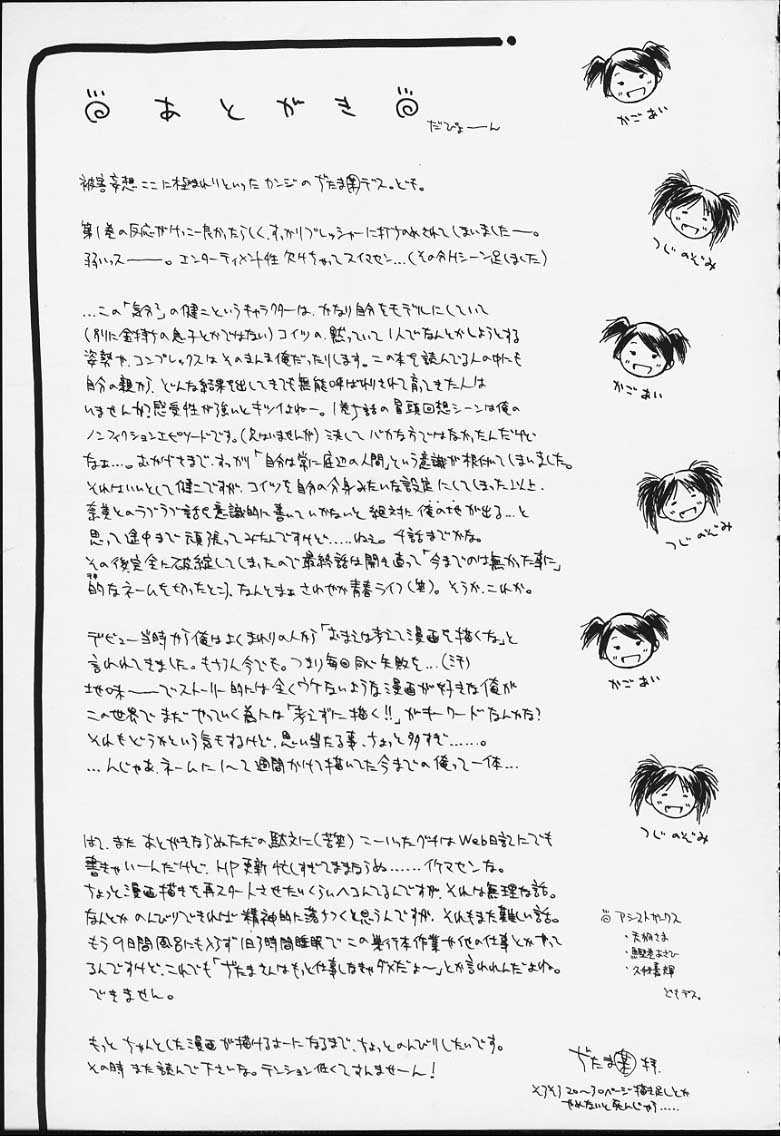 あとがき
だぴょーん
被害妄想ここに極まれりといったカンジのぢたま㊙デス。ども。
第1巻の反応がけっこー良かったらしく、すっかりプレッシャーに打ちのめされてしまいましたー。
弱いッスー。エンターティメント性欠けちゃってスイマセン…(その分Hシーン足しました)
…この「」の健二というキャラクターは、かなり自分をモデルにしていて
(別に金持ちの息子とかではない)コイツの、黙っていて1人でなんとかしようとする
姿勢や、コンプレックスはそのまんま俺だったりします。この本を読んでる人の中にも
自分の親から、どんな結果を出してきても無能呼ばわりされて育ってきた人は
いませんか?感受性が強いとキツイよねー。1巻1話の冒頭回想シーンは俺の
ノンフィクションエピソードです。(犬はいませんが)決してバカな方ではなかったんだけど
なぁ…。おかげさまで、すっかり「自分は常に底辺の人間」という意識が根付いてしまいました。
それはいいとして健二ですが、コイツを自分の分身みたいな設定にしてしまった以上、
奈美とのラブラブ話を意識的に書いていかないと絶対に俺の地が出る…と
思って途中まで頑張ってみたんですけど……ねぇ。4話までかな。
その後完全に破綻してしまったので最終話は開き直って「今までのは無かった事に」
的なネームを切ったところ、なんとまぁさわやか青春ライフ(笑)。そうか、これか。
デビュー当時から俺はよくまわりの人から「おまえは考えて漫画を描くな」と
言われてきました。もちろん今でも。つまり毎回同じ失敗を…(汗)
地味ーでストーリー的には全くウケないような漫画が好きな俺が
この世界でまだやっていく為には「考えずに描く!!」がキーワードなんかな?
それもどうかという気もするけど、思い当たる事、ちょっと多すぎ……。
…んじゃあ、ネームに1〜2週間かけて描いてた今までの俺って一体…
はて、また あとがきならぬただの駄文に(苦笑)こーいったグチはWeb日記にでも
書きゃいーんだけど、HP更新忙しすぎてままならぬ……イケマセンな。
ちょっと漫画描きを再スタートさせたいくらいヘコんでるんですが、それは無理な話。
なんとかのんびりできれば精神的に落ちつくと思うんですが、それもまた難しい話。
もう9日間風呂にも入らず1日3時間睡眠でこの単行本作業や他の仕事とかやって
るんですけど、これでも「ぢたまさんはもっと仕事しなきゃダメだよ〜」とか言われんだよね。
できません。
もっとちゃんとした漫画が描けるよーになるまで、ちょっとのんびりしたいです。
その時また読んで下さいな。テンション低くてすんませーん!
かごあい
つじのぞみ
かごあい
つじのぞみ
かごあい
つじのぞみ
アシストサンクス
・さま
・よさひ
・久村善輝
どもデス。
ぢたま 拝.
そろそろ20〜30ページ描き足しとか
やめないと死んじゃう……